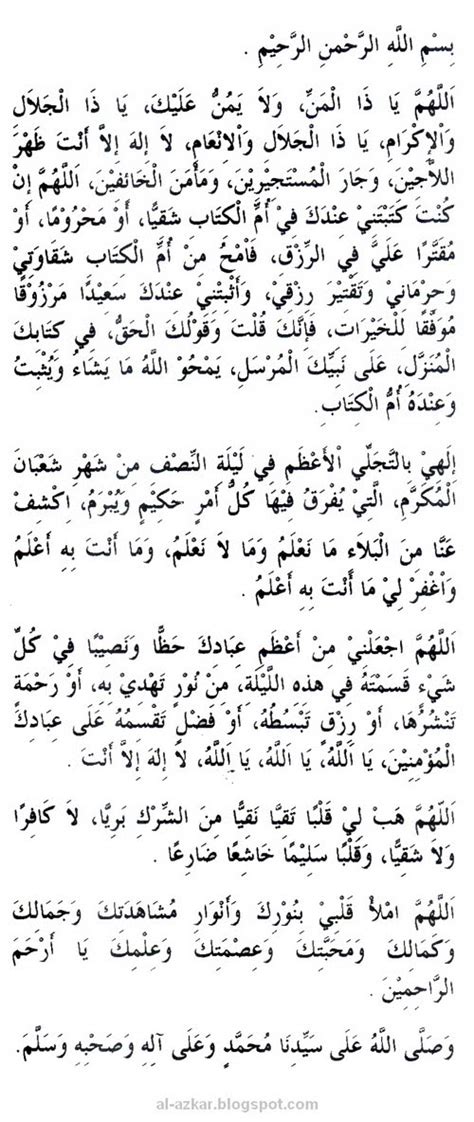 بِسْمِ اللَّهِ الرَّحْمنِ الرَّحِيْمِ .
اَللَّهُمَّ يَا ذَا الْمَنِّ، وَلاَ يَمُنُّ عَلَيْكَ، يَا ذَا الْجَلاَلِ
وَاْلإِكْرَامِ، يَا ذَا الْجَلاَلِ وَاْلاِنْعَامِ، لاَ إِلهَ إِلاَّ أَنْتَ ظَهْرَ
اللاَّجِيْنَ، وَجَارَ الْمُسْتَجِيْرِيْنَ، وَمَأْمَنَ الْخَائِفيْنَ، اَللَّهُمَّ إِنْ
كُنْتَ كَتَبْتَنِيْ عِنْدَكَ فِيْ أُمِّ الْكِتَابِ شَقِيًّا، أَوْ مَحْرُوْمًا، أَوْ
مُقَتَّرًا عَلَيَّ فِي الرِّزْقِ، فَاْمْحُ مِنْ أُمِّ الْكِتَابِ شَقَاوَتِيْ
وَحِرْمَانِيْ وَتَقْتِيْرَ رِزْقِيْ، وَأَثْبِتْنِيْ عِنْدَكَ سَعِيْدًا مَرْزُوْقًا
مُوَفَّقًا لِلْخَيْرَاتِ، فَإِنَّكَ قُلْتَ وَقَوْلُكَ الْحَقُّ، فِي كِتَابِكَ
الْمُنَزَّلِ، عَلَى نَبِيِّكَ الْمُرْسَلِ، يَمْحُوْ اللَّهُ مَا يَشَاءُ وَيُثْبِتُ
وَعِنْدَهُ أُمُّ الْكِتَابِ.
إِلَهِيْ بِالتَّجَلِّي اْلأَعْظَمِ فِي لَيْلَةِ النِّصْفِ مِنْ شَهْرِ شَعْبَانَ
الْمُكَرَّمِ، الَّتِيْ يُفْرَقُ فِيْهَا كُلُّ أَمْرٍ حَكِيْمٍ وَيُبْرَمُ، اِكْشِفْ
عَنَّا مِنَ الْبَلاَءِ مَا نَعْلَمُ وَمَا لاَ نَعْلَمُ، وَمَا أَنْتَ بِهِ أَعْلَمُ
وَاْغْفِرْ لِيْ مَا أَنْتَ بِهِ أَعْلَمُ .
اَللَّهُمَّ اجْعَلْنِيْ مِنْ أَعْظَمِ عِبَادِكَ حَظًّا وَنَصِيْبًا فِيْ كُلِّ
شَيْءٍ قَسَمْتَهُ فِي هذِهِ اللَّيْلَةِ، مِنْ نُوْرٍ تَهْدِيْ بِهِ، أَوْ رَحْمَةٍ
تَنْشُرُهَا، أَوْ رِزْقٍ تَبْسُطُهُ، أَوْ فَضْلٍ تَقْسِمُهُ عَلَى عِبَادِكَ
الْمُؤْمِنِيْنَ، يَا اَللَّهُ، يَا اَللَّهُ، يَا اَللَّهُ، لاَ إِلهَ إِلاَّ أَنْتَ .
اَللّهُمَّ هَبْ لِيْ قَلْبًا تَقِيًّا نَقِيًّا مِنَ الشِّرْكِ بَرِيًّا، لاَ كَافِرًا
وَلاَ شَقِيًّا، وَقَلْبًا سَلِيْمًا خَاشِعًا ضَارِعًا .
اَللَّهُمَّ امْلأْ قَلْبِيْ بِنُوْرِكَ وَأَنْوَارِ مُشَاهَدَتِكَ وَجَمَالِكَ
وَكَمَالِكَ وَمَحَبَّتِكَ وَعِصْمَتِكَ وَعِلْمِكَ يَا أَرْحَمَ
الرَّاحِمِيْنَ .
وَصَلَّى اللَّهُ عَلَى سَيِّدِنَا مُحَمَّدٍ وَعَلَى آلِهِ وَصَحْبِهِ وَسَلَّمَ.
al-azkar.blogspot.com